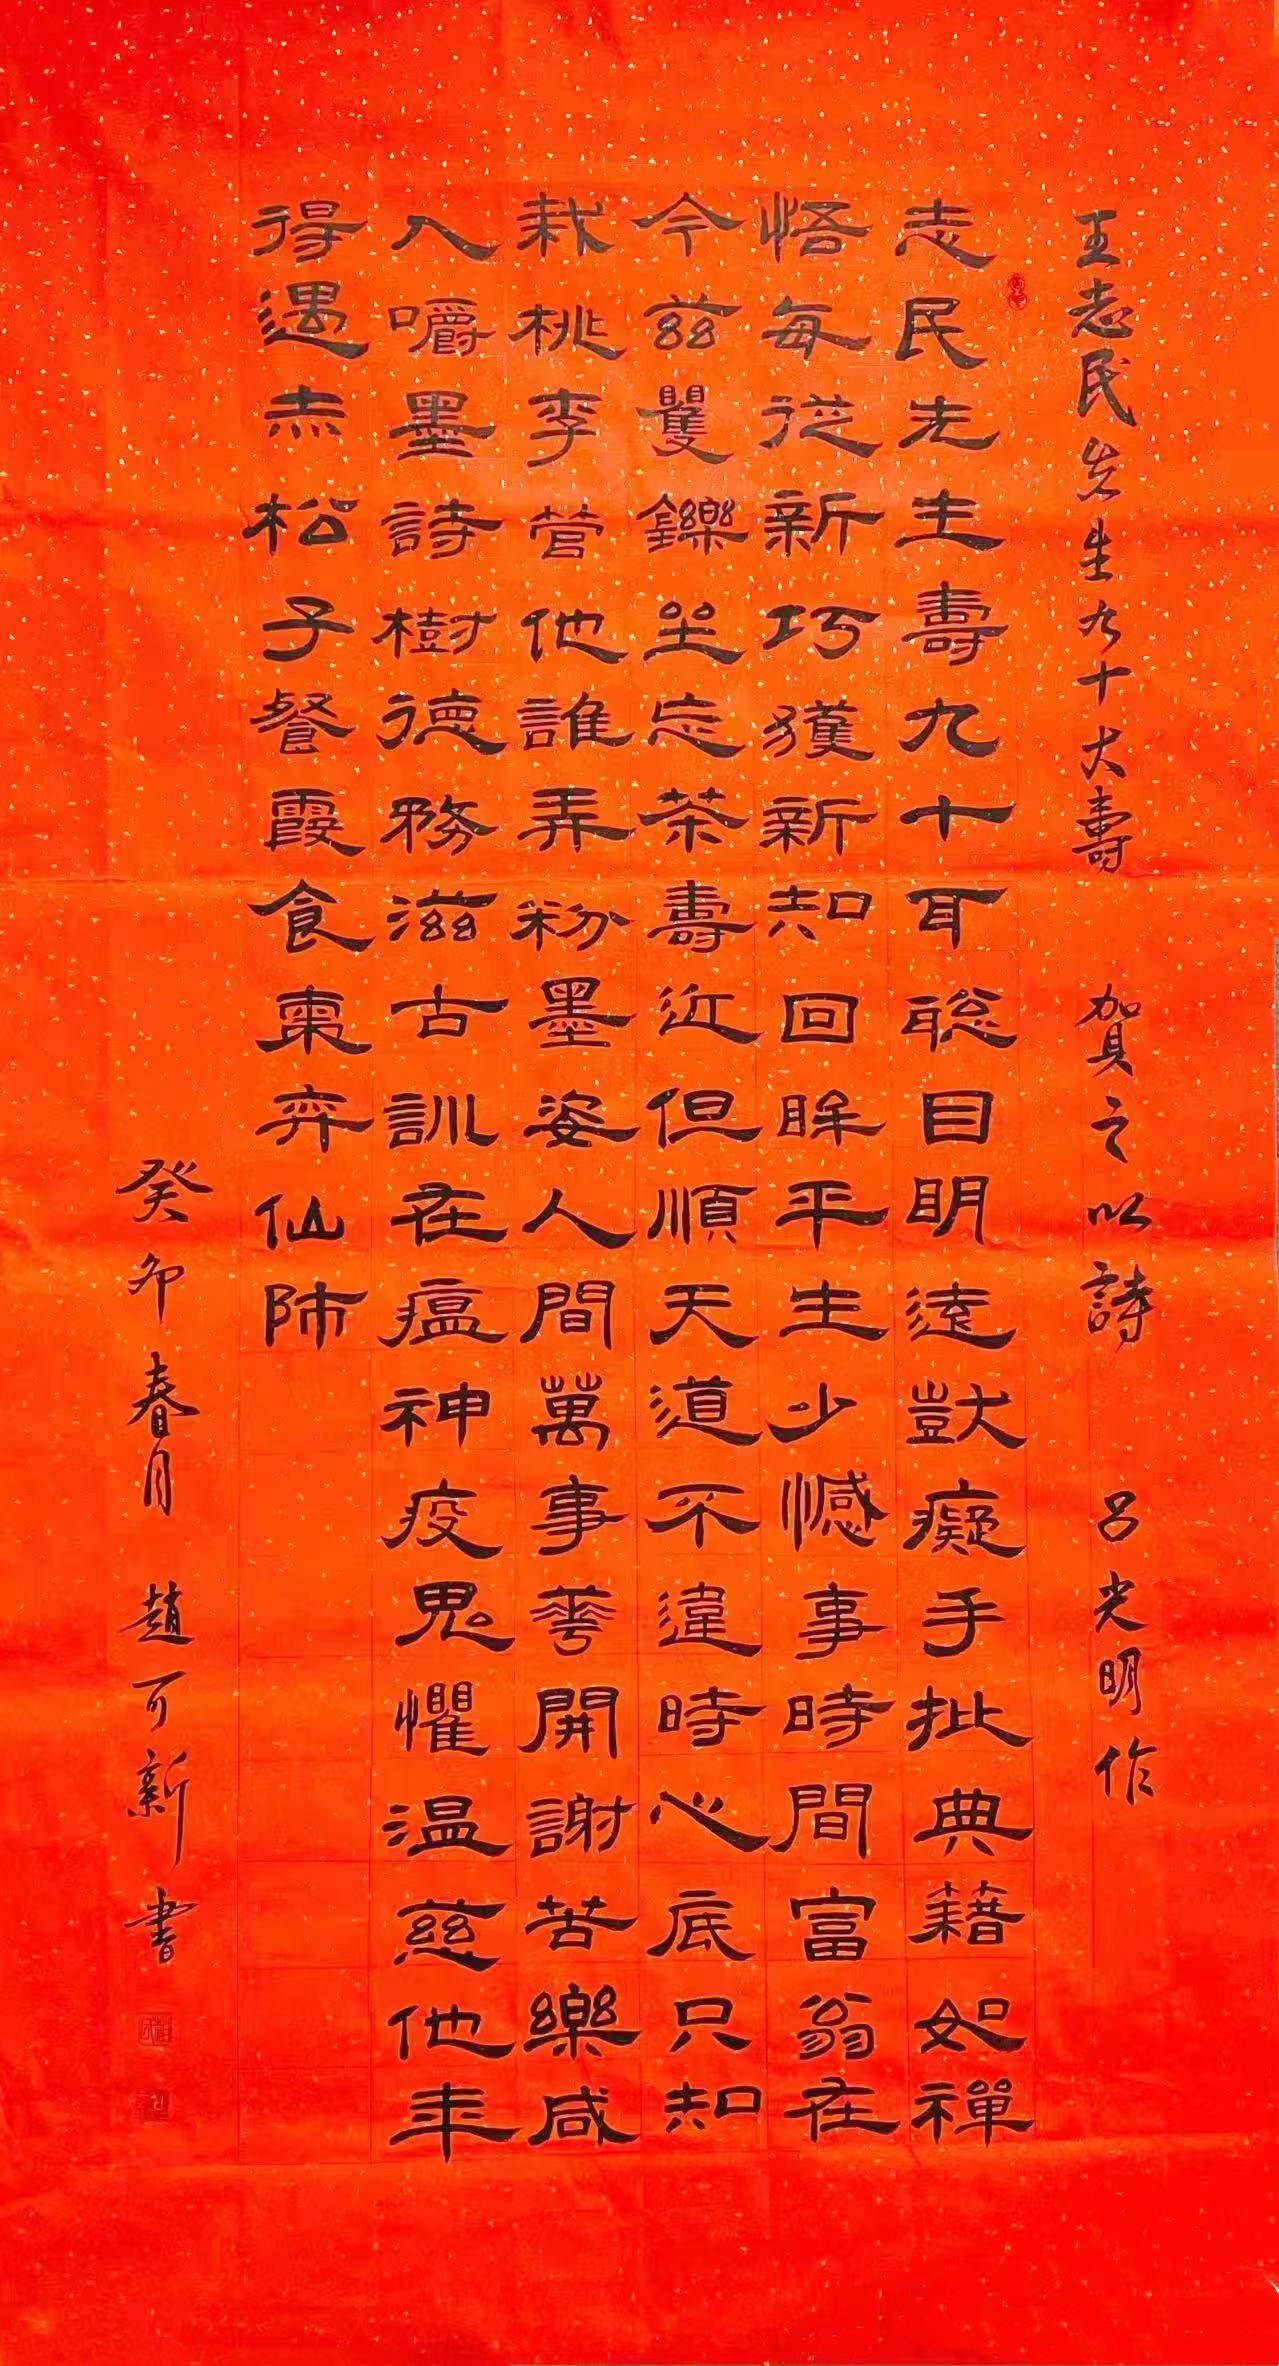 王志民先生九十大壽 賀之以詩 吕光明作
志民先生壽九十耳聡目明遠獃癡手批典籍如禪
悟每從新巧獲新知回眸平生少憾事時間富翁在
今茲矍鑠坐忘茶壽近但順天道不違時心底只知
栽桃李管他誰弄粉墨姿人間萬事華開謝苦樂咸
入嚼墨詩樹德務滋古訓在瘟神疫鬼懼温慈他年
得遇赤松子餐霞食棗弈仙師
癸卯春月 趙可新書